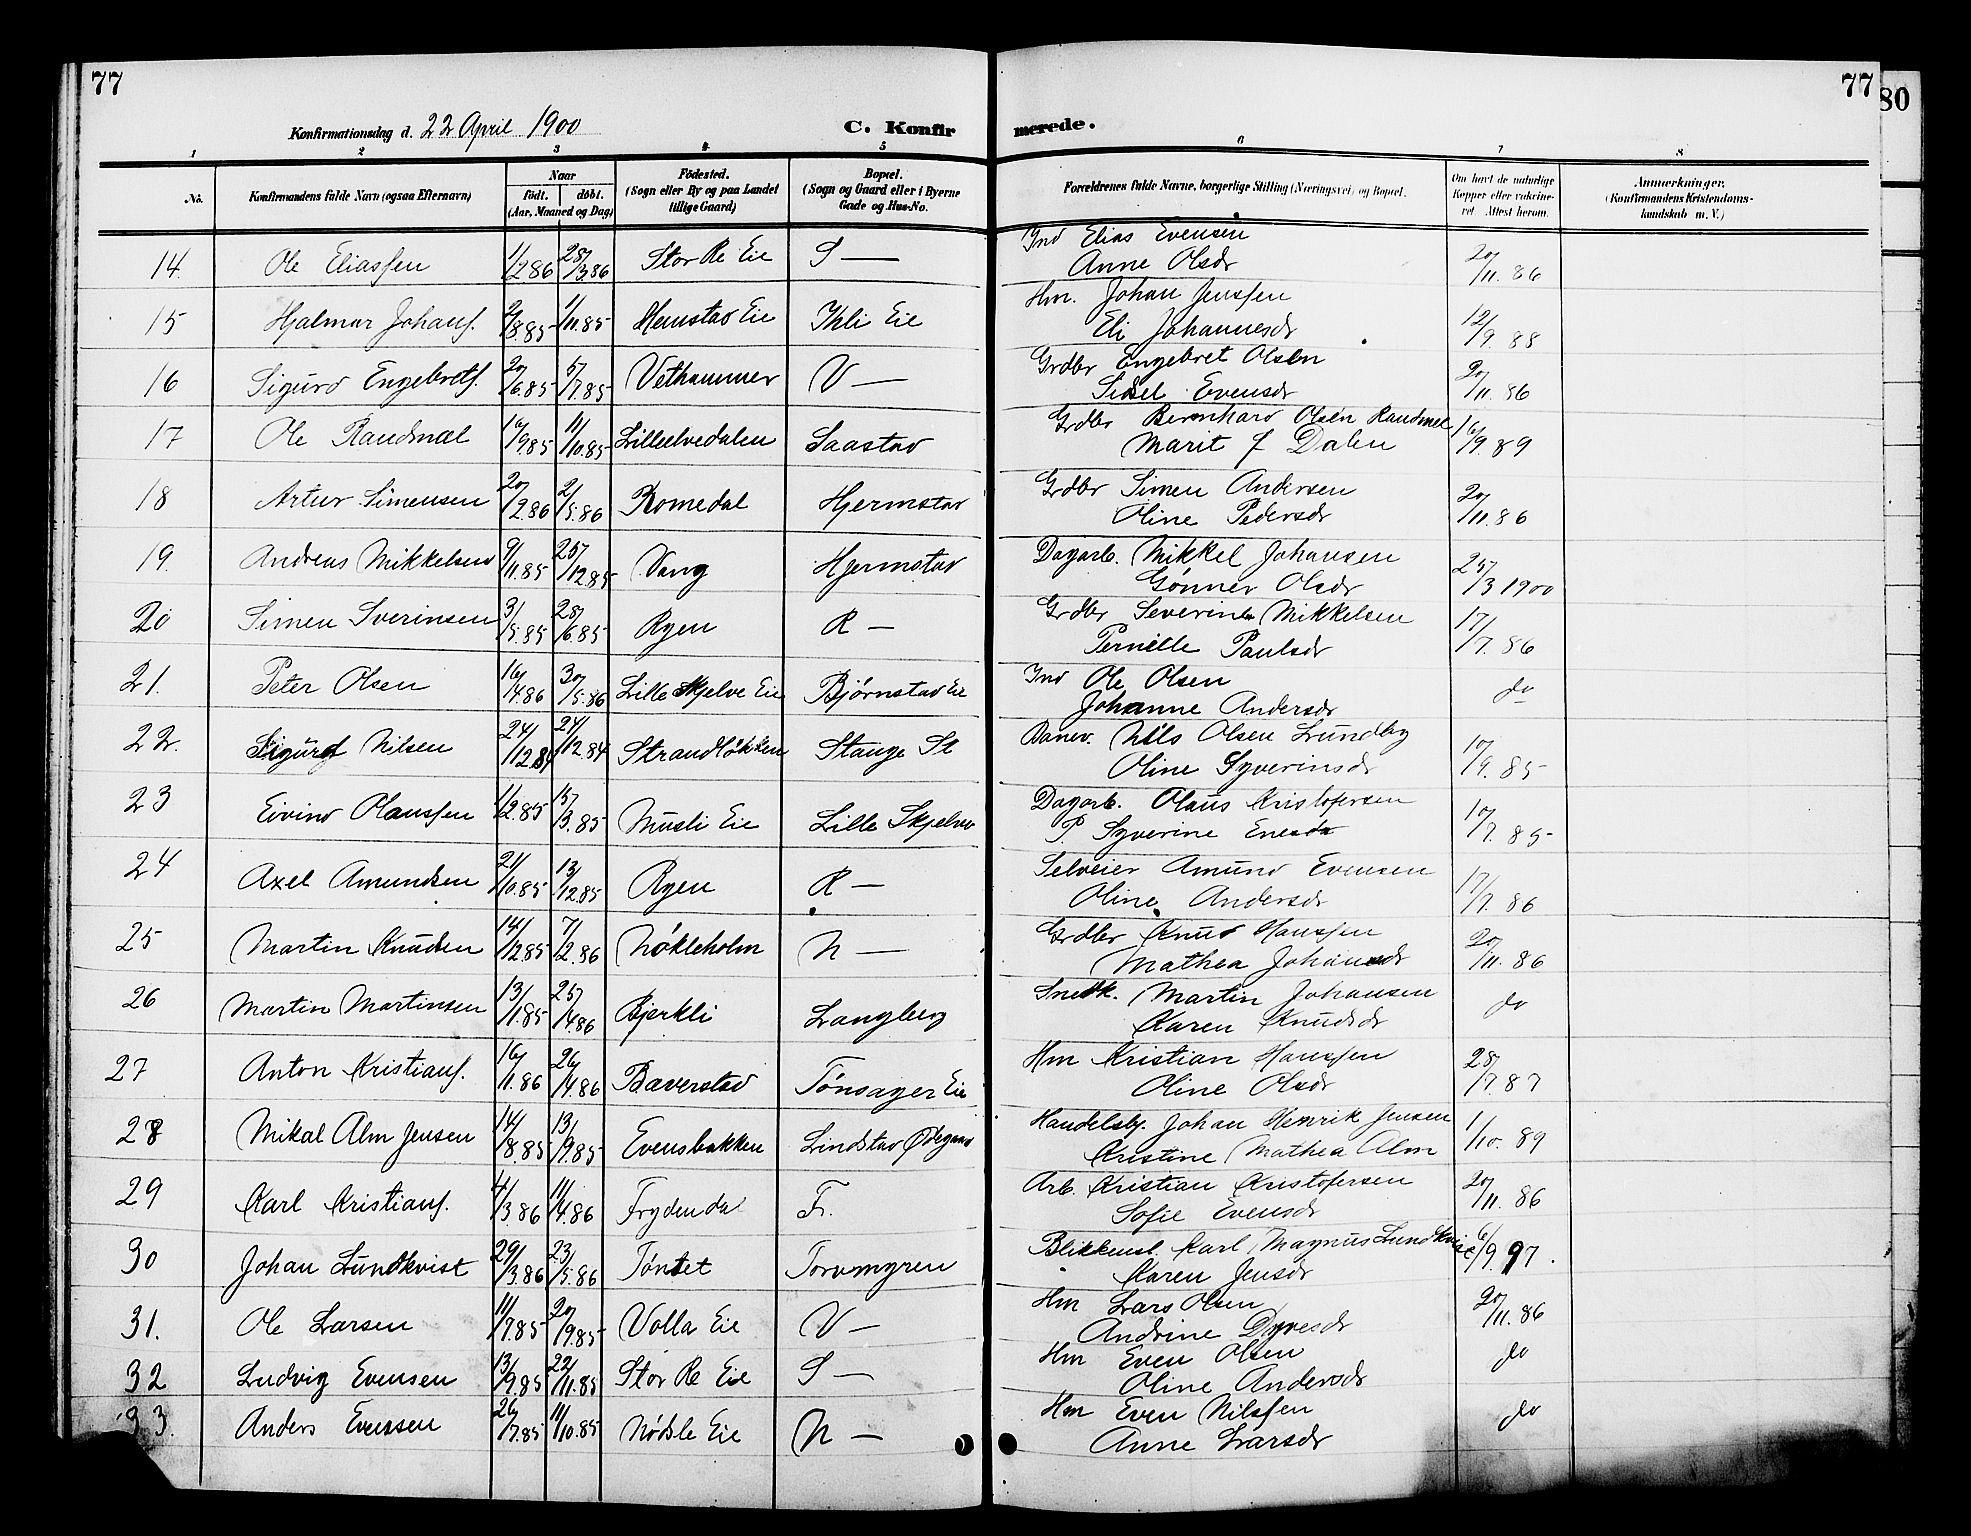 77
77
80
Konfirmationsdag d. 22 April 1900
C. Konfirmerede.
1 2 3 4 5 6 7 8
No. Konfirmandens fulde Navn (ogsaa Efternavn) Naar født. døbt. (Aar, Maaned og Dag) Fødested. (Sogn eller By og paa Landet tillige Gaard) Bopæl. (Sogn og Gaard eller i Byerne Gade og Hus-No. Forældrenes fulde Navne, borgerlige Stilling (Næringsvei) og Bopæl. Om havt de naturlige Kopper eller vakcineret Attest herom. Anmærkninger. (Konfirmandens Kristendomskundskab m. V.)
14. Ole Eliassen 1/2 86 28/3.86 Stor Re Eie S — Ind Elias Evensen 20/11.86
Anne Olsdr
15 Hjalmar Johans. 2/8.85 1/11.85 Hemstad Eie Ihli Eie Hm. Johan Jenssen 12/9 88
Eli Johannesdr
16 Sigurd Engebrets. 20/6.85 5/7.85 Vethammer V — Grdbr Engebret Olsen 20/11.86
Sidsel Evensdr
17 Ole Randmæl 10/9.85 11/10.85 Lilleelvedalen Saastad Grdbr Bernhard Olsen Randmæl 16/9 89
Marit f Dalen
18 Artur Simensen 20/2.86 2/5.86 Romedal Hjermstad Grdbr Simen Andersen 20/11.86
Oline Pedersdr
19. Andreas Mikkelsen 9/11.85 25/12.85 Vang Hjermstad Dagarb. Mikkel Johansen 25/3 1900
Gønner Olsdr
20 Simen Sverinsen 3/5.85 28/6.85 Ryen R — Grdbr Severin Mikkelsen 17/7.86
Pernille Paulsdr
21. Peter Olsen 16/4.86 30/5.86 Lille Skjelve Eie Bjørnstad Eie Ind Ole Olsen do
Johanne Andersdr
22. Sigurd Nilsen 24/12.84 24/12.84 Strandløkken Stange St Banev. Nils Olsen Lundby 10/9.85
Oline Syverinsdr
23 Eivind Olaussen 1/2.85 15/3.85 Musli Eie Lille Skjelve Dagarb. Olaus Kristofersen 10/7.85
P. Syverine Enesdr
24 Axel Amundsen 21/10.85 13/12.85 Ryen R — Selveier Amund Evensen 17/7.86
Oline Andersdr
25 Martin Knudsen 14/12.85 7/2.86 Nøkleholm N — Grdbr Knud Hanssen 20/11.86
Mathea Johansdr
26 Martin Martinsen 13/1.85 25/4.86 Bjerkli Langberg Snedk. Martin Johansen do
Karen Knudsdr
27 Anton Kristians. 16/1.86 26/4.86 Baverstad Tønsager Eie Hm Kristian Hanssen 28/7.87
Oline Olsdr
28 Mikal Alm Jensen 14/8.85 13/9.85 Evensbakken Lindstad Ødegaard Handelsby. Johan Henrik Jensen 1/10.89
Kristine Mathea Alm
29 Karl Kristians. 4/3.86 11/4.86 Frydendal F. Arb. Kristian Kristofersen 20/11.86
Sofie Evensdr
30 Johan Lundkvist 29/3.86 23/5.86 Tøntet Torvmyren Blikkensl. Karl Magnus Lundkvist 6/9.97.
Karen Jensdr
31. Ole Larsen 11/7.85 20/9.85 Volla Eie V — Hm Lars Olsen 20/11.86
Andrine Dyresdr
32 Ludvig Evensen 13/9.85 22/11.85 Stor Re Eie S — Hm Even Olsen do
Oline Andersdr
33. Anders Evensen 26/7.85 11/10.85 Nødsle Eie N — Hm Even Nilssen do
Anne Larsdr